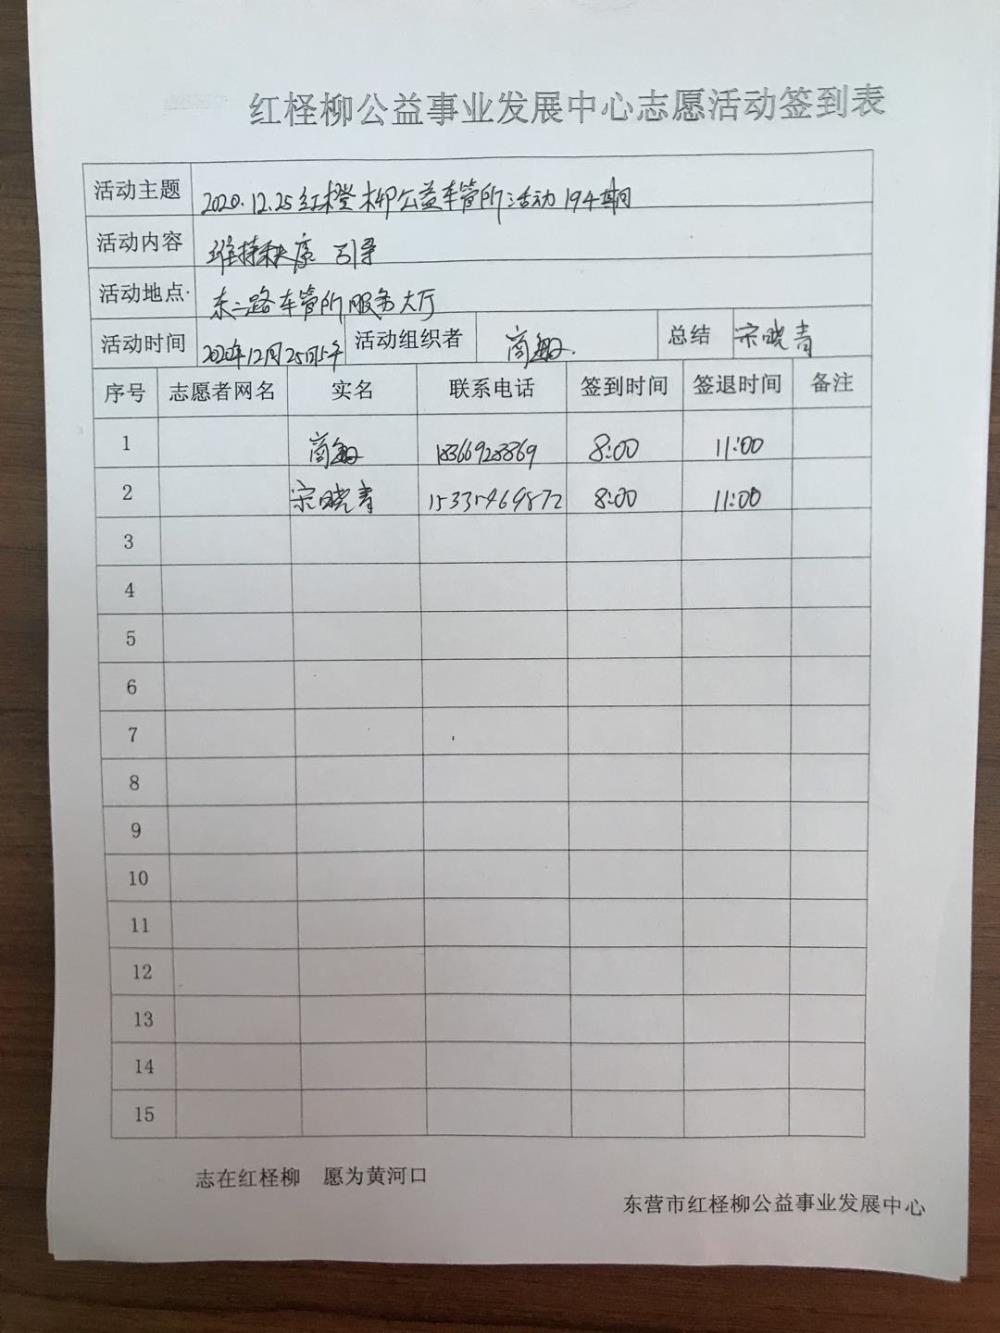 红柽柳公益事业发展中心志愿活动签到表
活动主题 2020.12.25红橙柳公益车管所活动194期
活动内容 维持秩序 引导
活动地点 东二路车管所服务大厅
活动时间 2020年12月25日上午 活动组织者 商 总结 宋晓青
序号 志愿者网名 实名 联系电话 签到时间 签退时间 备注
1 商 18366928869 8:00 11:00
2 宋晓青 15335469872 8:00 11:00
3
4
5
6
7
8
9
10
11
12
13
14
15
志在红柽柳 愿为黄河口
东营市红柽柳公益事业发展中心